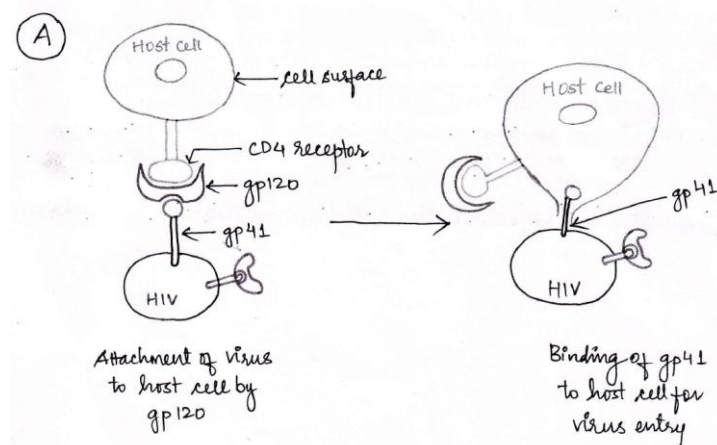 A
Host cell
cell surface
CD4 receptor
gp120
gp41
HIV
Attachment of virus
to host cell by
gp120
Host Cell
gp41
HIV
Binding of gp41
to host cell for
virus entry